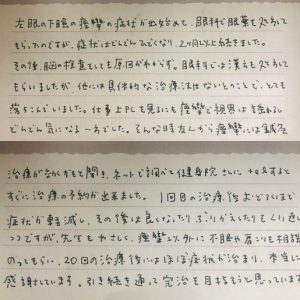 左眼の下瞼の痙攣の症状が出始めて、眼科で眼薬を処方して
もらったのですが、症状はどんどんひどくなり、2ヶ月以上続きました。
その後、脳の検査をしても原因がわからず。眼科では漢方も処方して
もらいましたが、他には具体的な治療法はないとのことで、とても
落ちこんでいました。仕事上PCを見るにも痙攣で視界は揺れるし
どんどん気になる一方でした。そんな時友人から痙攣には鍼灸
治療がなかがもと聞き、ネットで調べて健身院さんにTELすると
すぐに治療の予約が出来ました。1回目の治療後おどろくほど
症状が軽減し、その後は良くなったりぶりかえしたりをくり返し
つつですが、先生もやさしく、痙攣以外に不眠や肩こりも相談に
のってもらい、20回の治療後にはほぼ症状が治まり、本当に
感謝しています。引き続き通って完治を目指そうと思っています